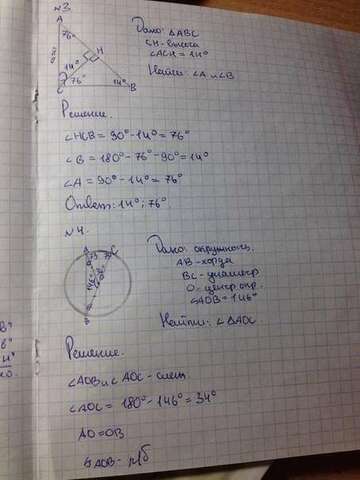 №3.
A
76°
90°
H
14°
76°
14°
C
B
Дано: △ABC
CH - высота
∠ACH = 14°
Найти: ∠A и ∠B
Решение.
∠HCB = 90° - 14° = 76°
∠B = 180° - 76° - 90° = 14°
∠A = 90° - 14° = 76°
Ответ: 14°; 76°
№4.
A
C
146°
O
B
Дано: окружность.
AB - хорда
BC - диаметр
O - центр окр.
∠AOB = 146°
Найти: ∠ △AOC
Решение.
∠AOB и ∠AOC - смеж
∠AOC = 180° - 146° = 34°
AO = OB
△AOB - р/б